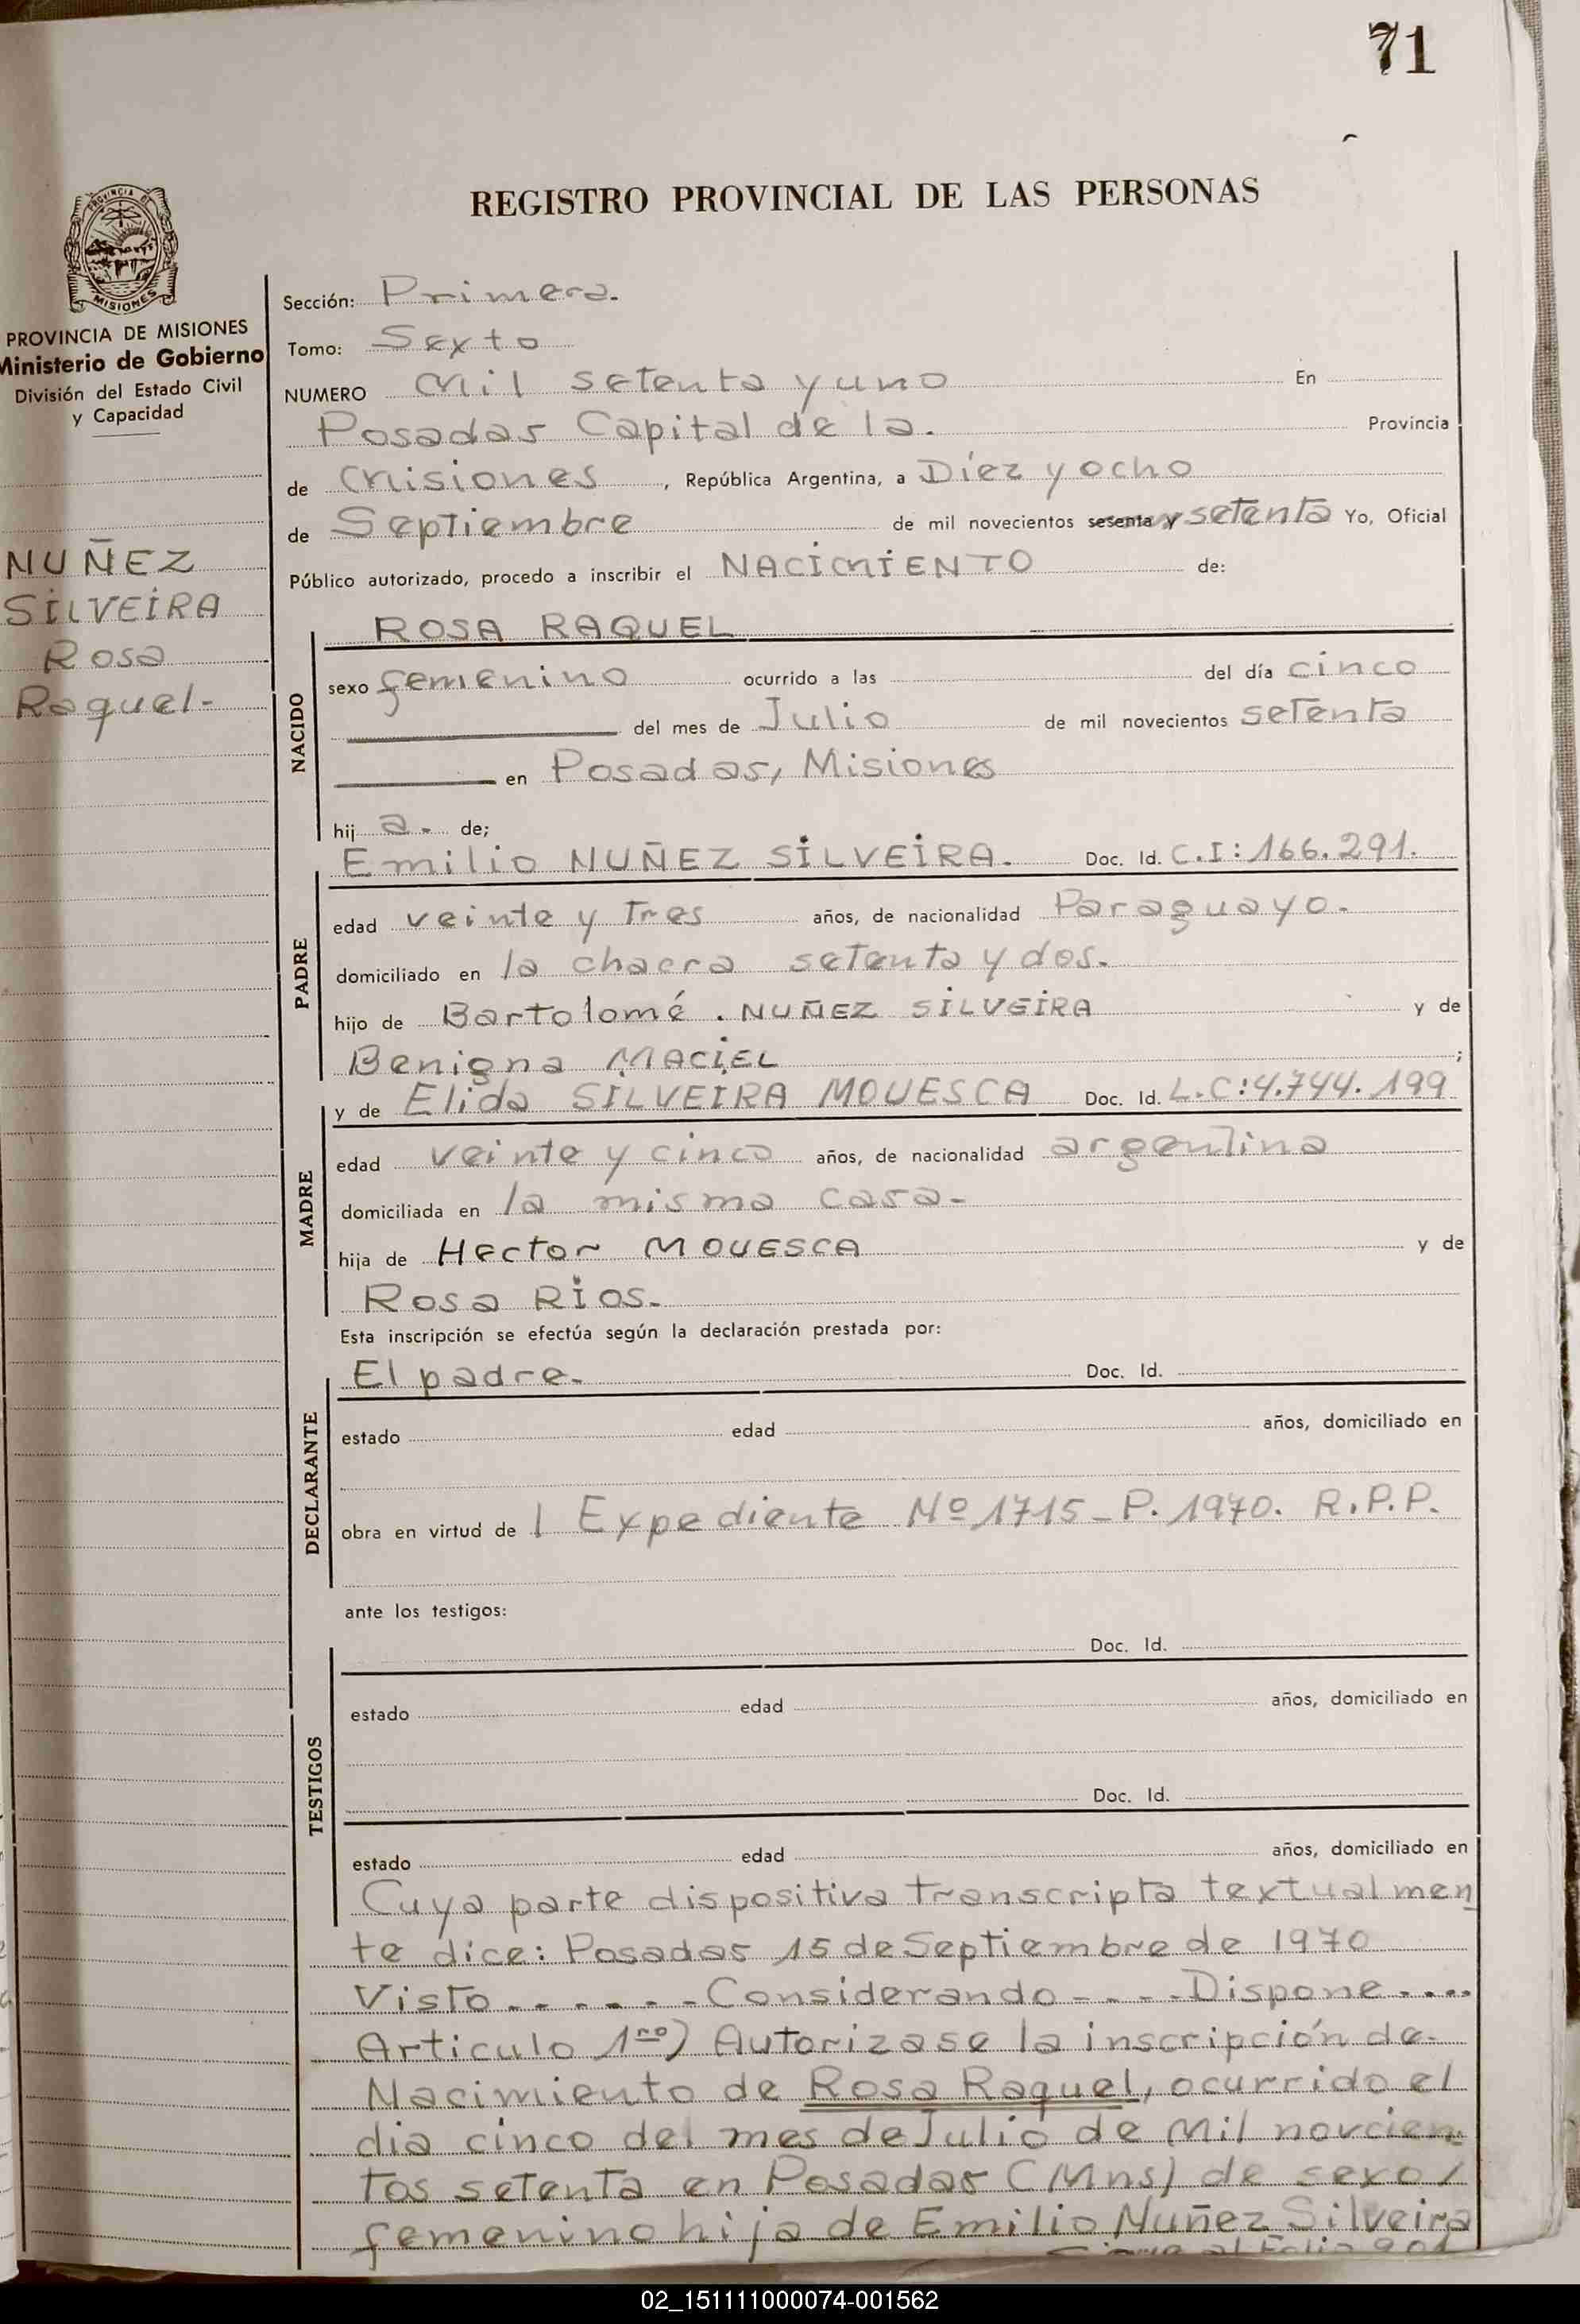 71
REGISTRO PROVINCIAL DE LAS PERSONAS
PROVINCIA DE MISIONES
Ministerio de Gobierno
División del Estado Civil
y Capacidad
NUÑEZ
SILVEIRA
Rosa
Raquel-
Sección: Primera.
Tomo: Sexto
NUMERO Mil setenta y uno En
Posadas Capital de la. Provincia
de Misiones, República Argentina, a Diez y ocho
de Septiembre de mil novecientos sesenta y setenta Yo, Oficial
Público autorizado, procedo a inscribir el NACIMIENTO de:
ROSA RAQUEL
NACIDO
sexo femenino ocurrido a las del día cinco
del mes de Julio de mil novecientos setenta
en Posadas, Misiones
hij a. de;
Emilio NUÑEZ SILVEIRA. Doc. Id. C.I: 166.291.
PADRE
edad veinte y Tres años, de nacionalidad Paraguayo.
domiciliado en la chacra setenta y dos.
hijo de Bartolomé. NUÑEZ SILVEIRA y de
Benigna MACIEL ;
y de Elida SILVEIRA MOUESCA Doc. Id. L.C: 4.744.199
MADRE
edad veinte y cinco años, de nacionalidad argentina
domiciliada en la misma casa-
hija de Hector MOUESCA y de
Rosa RIOS.
Esta inscripción se efectúa según la declaración prestada por:
El padre. Doc. Id.
DECLARANTE
estado edad años, domiciliado en
obra en virtud de | Expediente Nº 1715-P.1970. R.P.P.
ante los testigos:
Doc. Id.
TESTIGOS
estado edad años, domiciliado en
Doc. Id.
estado edad años, domiciliado en
Cuya parte dispositiva transcripta textualmen
te dice: Posadas 15 de Septiembre de 1970
Visto.......Considerando----Dispone....
Articulo 1ro) Autorizase la inscripción de-
Nacimiento de Rosa Raquel, ocurrido el
dia cinco del mes de Julio de Mil novcien-
tos setenta en Posadas (Mns) de sexo/
femenino hija de Emilio Nuñez Silveira
al Folio 901
02_151111000074-001562